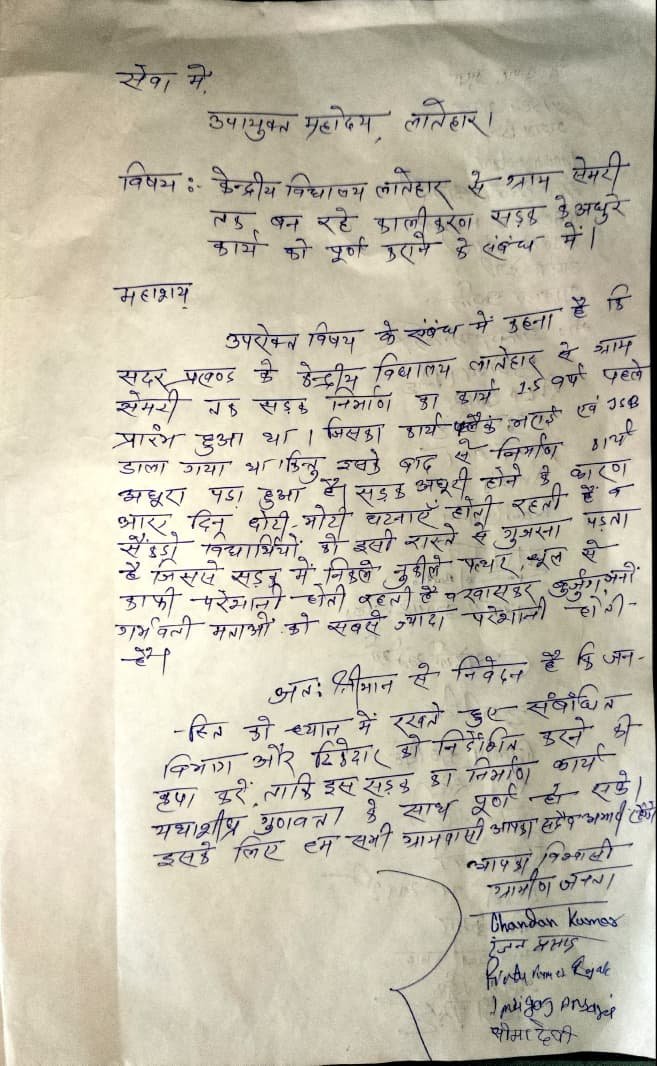 सेवा में,
उपायुक्त महोदय, लातेहार।
विषय :- केन्द्रीय विद्यालय लातेहार से ग्राम सेमरी
तक बन रहे कालीकरण सड़क के अधुरे
कार्य को पूर्ण कराने के संबंध में।
महाशय,
उपरोक्त विषय के संबंध में कहना है कि
सदर प्रखण्ड के केन्द्रीय विद्यालय लातेहार से ग्राम
सेमरी तक सड़क निर्माण का कार्य 1.5 वर्ष पहले
प्रारंभ हुआ था। जिसका कार्य एवं JSB
डाला गया था। किन्तु इसके बाद से निर्माण कार्य
अधूरा पड़ा हुआ है। सड़क अधूरी होने के कारण
आए दिन छोटी-मोटी घटनाएँ होती रहती हैं व
सैंकड़ो विद्यार्थियों को इसी रास्ते से गुजरना पड़ता
है जिससे सड़क में निकले नुकीले पत्थर, धूल से
काफी परेशानी होती रहती है व खासकर
गर्भवती मताओं को सबसे ज्यादा परेशानी होती-
है।
अतः श्रीमान से निवेदन है कि जन-
-हित को ध्यान में रखते हुए संबंधित
विभाग और ठिकेदार को निर्देशित करने की
कृपा करें, ताकि इस सड़क का निर्माण कार्य
यथाशीघ्र गुणवता के साथ पूर्ण हो सके।
इसके लिए हम सभी ग्रामवासी आपका सदैव आभारी रहेंगे।
आपका विश्वासी
ग्रामीण जनता
Chandan Kumar
रंजन प्रसाद
Kumar
सीमा देवी